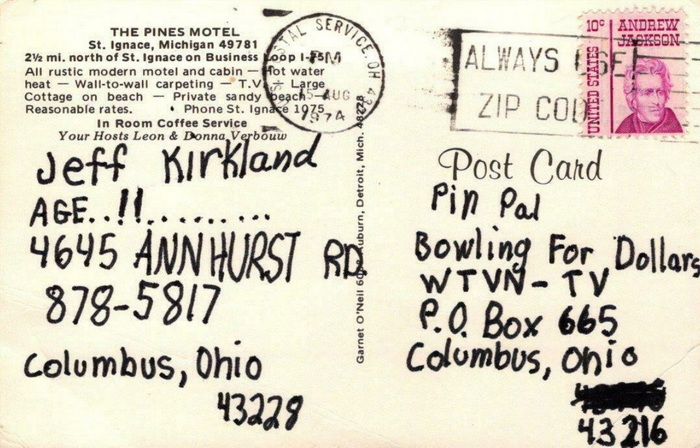 THE PINES MOTEL
St. Ignace, Michigan 49781
2½ mi. north of St. Ignace on Business Loop I-75
All rustic modern motel and cabin — Hot water
heat — Wall-to-wall carpeting — T.V. — Large
Cottage on beach — Private sandy beach
Reasonable rates. • Phone St. Ignace 1075
In Room Coffee Service
Your Hosts Leon & Donna Verbouw
Jeff Kirkland
AGE..11..........
4645 ANNHURST RD.
878-5817
Columbus, Ohio
43228
POSTAL SERVICE, OH
PM
15 AUG
1974
Garnet O'Neil Auburn, Detroit, Mich. 48228
ALWAYS USE
ZIP CODE
10c ANDREW
JACKSON
UNITED STATES
Post Card
Pin Pal
Bowling For Dollars
WTVN-TV
P.O. Box 665
Columbus, Ohio
43216